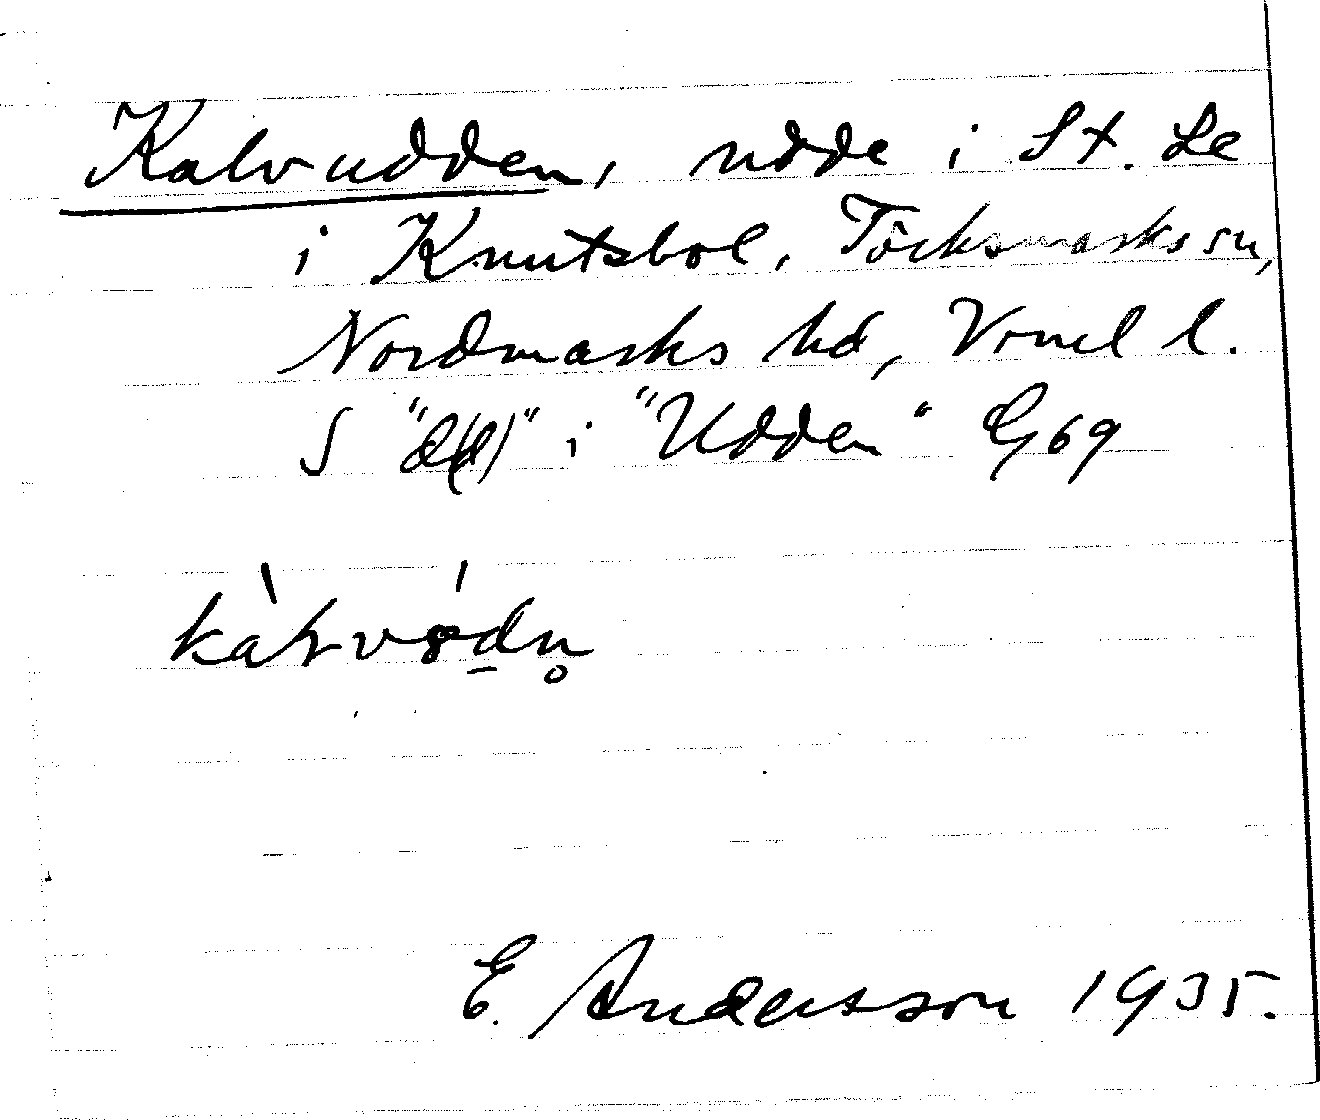 Kalvudden, udde i St. Le
i Knutsbol, Töcksmarks sn,
Nordmarks hd, Vrml l.
S "d(d)" i "Udden" G69
E. Andersson 1935.